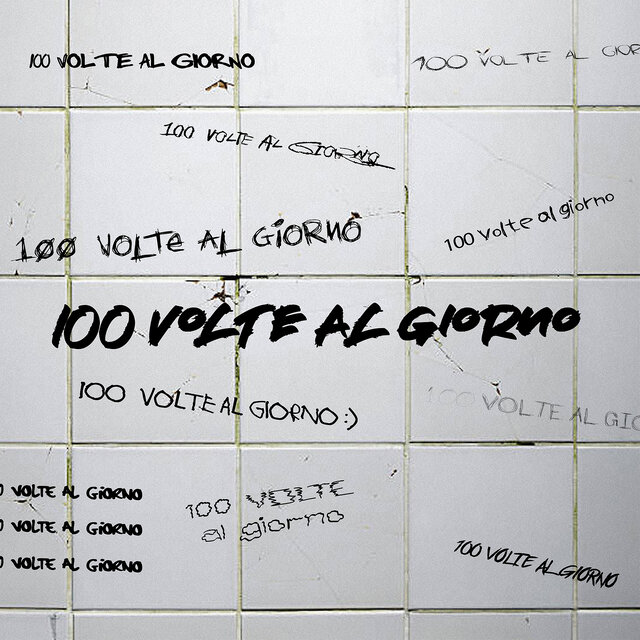 100 VOLTE AL GIORNO
100 VOLTE AL GIOR
100 VOLTE AL GIORNO
100 volte al giorno
100 VOLTE AL GIORNO
100 VOLTE AL GIORNO
100 VOLTE AL GIORNO :)
100 VOLTE AL GIO
0 VOLTE AL GIORNO
0 VOLTE AL GIORNO
0 VOLTE AL GIORNO
100 VOLTE
al giorno
100 VOLTE AL GIORNO